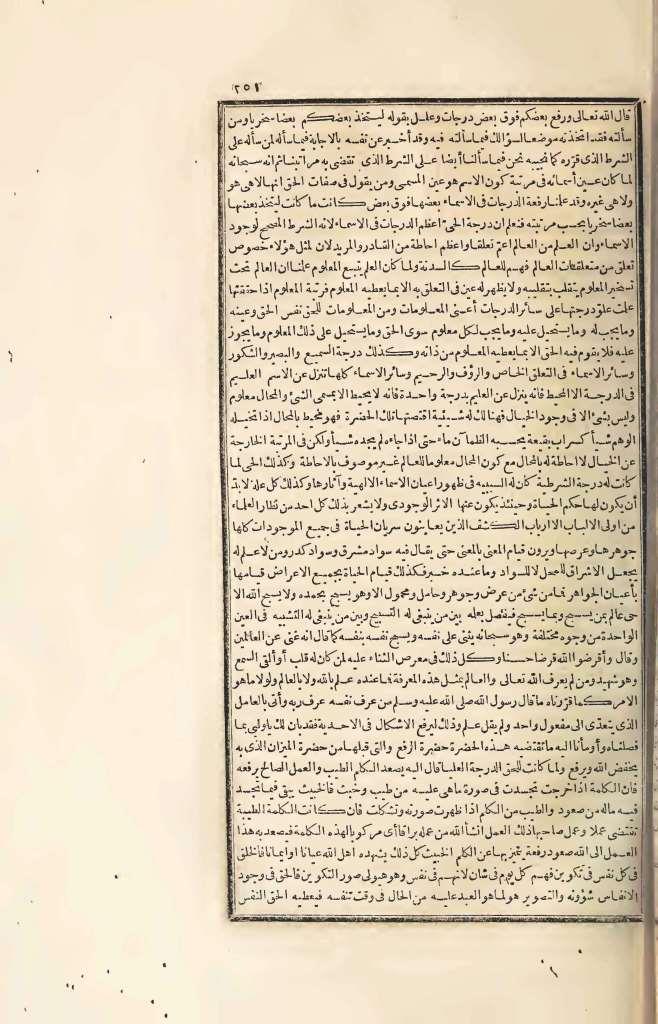 ٢٥١
قال الله تعالى ورفع بعضكم فوق بعض درجات وعلل بقوله ليتخذ بعضكم بعضا سخريا ومن
سألته فقد اتخذته موضعا لسؤالك فيما سألته فيه وقد أخبر عن نفسه بالاجابة فيما سأله لمن سأله على
الشرط الذي قرره كما نجيبه نحن فيما سألنا أيضا على الشرط الذي تقتضي به مراتبنا ثم انه سبحانه
لما كان عين أسمائه في مرتبة كون الاسم هو عين المسمى ومن يقول في صفات الحق انها لا هي هو
ولا هي غيره وقد علمنا رفعة الدرجات في الاسماء بعضها فوق بعض كانت ما كانت ليتخذ بعضها
بعضا سخريا بحسب مرتبته فنعلم ان درجة الحي أعظم الدرجات في الاسماء لانه الشرط المصحح لوجود
الاسماء وان العلم من العالم اعم تعلقا وأعظم احاطة من القادر والمريد لان لمثل هؤلاء خصوص
تعلق من متعلقات العالم فهم للعالم كالسدنة ولما كان العلم يتبع المعلوم علمنا ان العالم تحت
تسخير المعلوم يتقلب بتقلبه ولا يظهر له عين في التعلق به الا بما يعطيه المعلوم فرتبة المعلوم اذا حققتها
علمت علو درجتها على سائر الدرجات أعني المعلومات ومن المعلومات للحق نفس الحق وعينه
وما يجب له وما يستحيل عليه وما يجب لكل معلوم سوى الحق وما يستحيل على ذلك المعلوم وما يجوز
عليه فلا يقوم فيه الحق الا بما يعطيه المعلوم من ذاته وكذلك درجة السميع والبصير والشكور
وسائر الاسماء في التعلق الخاص والرؤف والرحيم وسائر الاسماء كلها تنزل عن الاسم العليم
في الدرجة الا المحيط فانه ينزل عن العليم بدرجة واحدة فانه لا يحيط الا بمسمى الشئ والمحال معلوم
وليس بشئ الا في وجود الخيال فهنالك له شيئية اقتضتها تلك الحضرة فهو محيط بالمحال اذا تخيله
الوهم شيأ كسراب بقيعة يحسبه الظمآن ماء حتى اذا جاءه لم يجده شيأ ولكن في المرتبة الخارجة
عن الخيال لا احاطة له بالمحال مع كون المحال معلوما للعالم غير موصوف بالاحاطة وكذلك الحي لما
كانت له درجة الشرطية كان له السببية في ظهور اعيان الاسماء الالهية وآثارها وكذلك كل علة لا بد
أن يكون لها حكم الحياة وحينئذ يكون عنها الاثر الوجودي ولا يشعر بذلك كل احد من نظار العلماء
من اولي الالباب الا ارباب الكشف الذين يعاينون سريان الحياة في جميع الموجودات كلها
جوهرها وعرضها ويرون قيام المعنى بالمعنى حتى يقال فيه سواد مشرق وسواد كدر ومن لا علم له
يجعل الاشراق للمحل لا للسواد وما عنده خبر فكذلك قيام الحياة بجميع الاعراض قيامها
بأعيان الجواهر فما من شئ من عرض وجوهر وحامل ومحمول الا وهو يسبح بحمده ولا يسبح الله الا
حي عالم بمن يسبح وبما يسبح فيفصل بعلمه بين من ينبغي له التسبيح وبين من ينبغي له التشبيه في العين
الواحدة من وجوه مختلفة وهو سبحانه يثني على نفسه ويسبح نفسه بنفسه كما قال انه غني عن العالمين
وقال وأقرضوا الله قرضا حسنا وكل ذلك في معرض الثناء عليه لمن كان له قلب أو ألقى السمع
وهو شهيد ومن لم يعرف الله تعالى والعالم بمثل هذه المعرفة فما عنده علم بالله ولا بالعالم ولولا ما هو
الامر كما قررناه ما قال رسول الله صلى الله عليه وسلم من عرف نفسه عرف ربه وأتى بالعامل
الذي يتعدى الى مفعول واحد ولم يقل علم وذلك ليرفع الاشكال في الاحدية فقد بان لك يا وليي بما
فصلناه وأومأنا اليه ما تقتضيه هذه الحضرة حضرة الرفع والتي قبلها من حضرة الميزان الذي به
يخفض الله ويرفع ولما كانت للحق الدرجة العليا قال اليه يصعد الكلم الطيب والعمل الصالح يرفعه
فان الكلمة اذا خرجت تجسدت في صورة ما هي عليه من طيب وخبث فالخبيث يبقى فيما تجسد
فيه ماله من صعود والطيب من الكلم اذا ظهرت صورته وتشكلت فان كانت الكلمة الطيبة
تقتضي عملا وعمل صاحبها ذلك العمل انشأ الله من عمله براقا أي مركوبا لهذه الكلمة فيصعد به هذا
العمل الى الله صعود رفعة يتميز بها عن الكلم الخبيث كل ذلك يشهده اهل الله عيانا او ايمانا فالخلق
في كل نفس في تكوين فهم كل يوم في شان لانهم في نفس وهو هيولى صور التكوين فالحق في وجود
الانفاس شؤونه والتصوير هو لما هو العبد عليه من الحال في وقت تنفسه فيعطيه الحق النفس